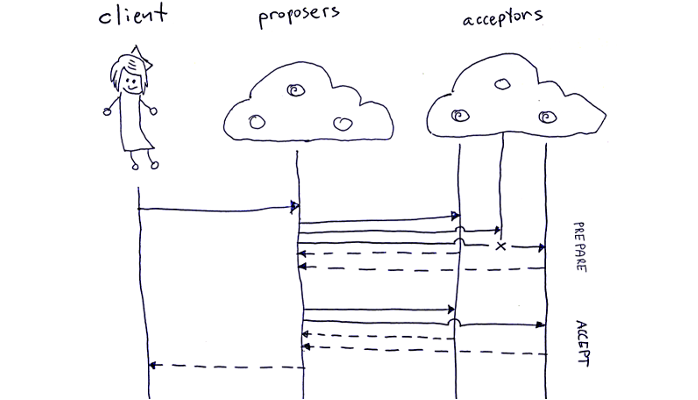 client
proposers
acceptors
PREPARE
ACCEPT